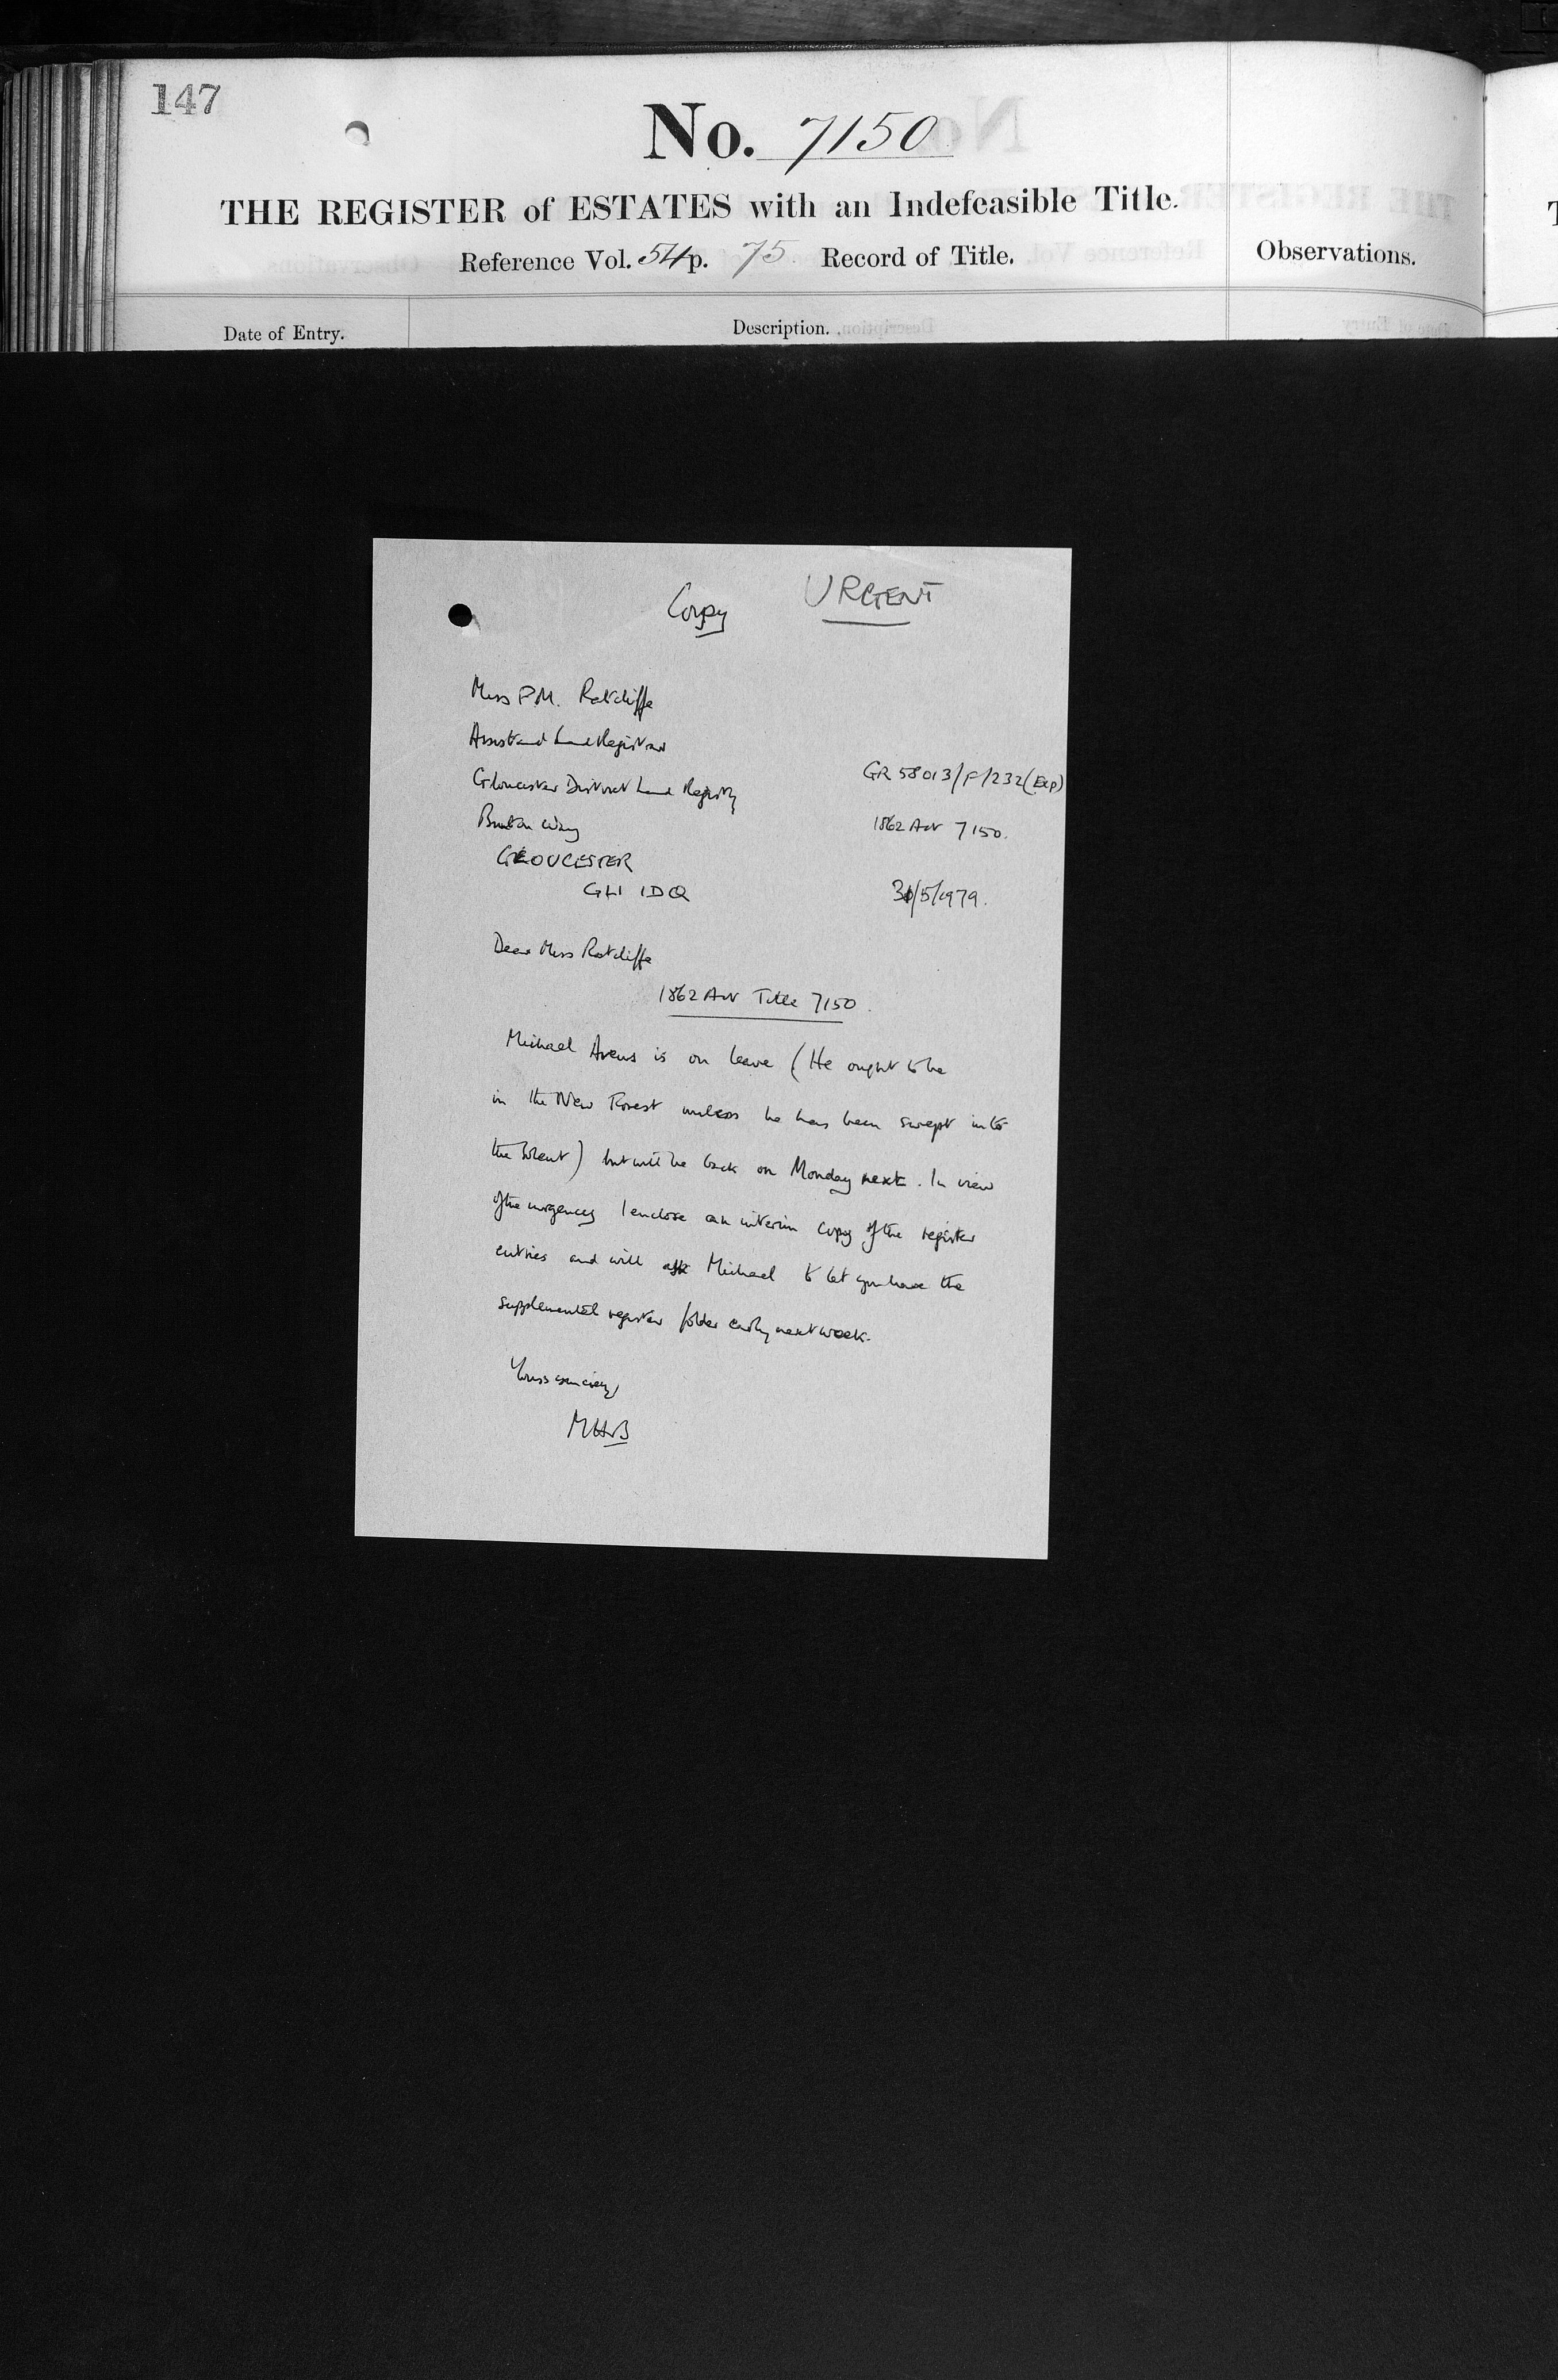 147
No. 7150
THE REGISTER of ESTATES with an Indefeasible Title.
Reference Vol. 54 p. 75 Record of Title.
Observations.
Date of Entry.
Description.
Copy
URGENT
Miss P.M. Ratcliffe
Assistant Land Registrar
Gloucester District Land Registry
GR 58013/F/232(Exp)
Bruton Way
1862 Act 7150.
GLOUCESTER
GL1 1DQ
31/5/1979.
Dear Miss Ratcliffe
1862 Act Title 7150.
Michael Avens is on leave (He ought to be
in the New Forest unless he has been swept into
the Solent) but will be back on Monday next. In view
of the urgency I enclose an interim copy of the register
entries and will ask Michael to let you have the
supplemental register folder early next week.
Yours sincerely
MHB